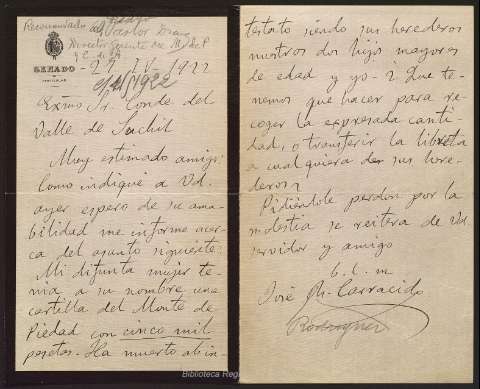 Recomendado al
Pastor Diaz
Director gerente de M. del P.
y C. de A.
SENADO
PARTICULAR
1922
Exmo Sr. Conde del
Valle de Suchil
Muy estimado amigo:
Como indiqué a Vd.
ayer espero de su ama-
bilidad me informe acer-
ca del asunto siguiente:
Mi difunta mujer te-
nia a su nombre una
cartilla del Monte de
Piedad con cinco mil
pesetas. Ha muerto abin-
testato siendo sus herederos
nuestros dos hijos mayores
de edad y yo ¿Que te-
nemos que hacer para re-
coger la expresada canti-
dad, o transferir la libreta
a cualquiera de sus here-
deros?
Pidiendole perdon por la
molestia se reitera de Vd
servidor y amigo
b. l. m
José R. Carracido
Rodriguez
Biblioteca Reg